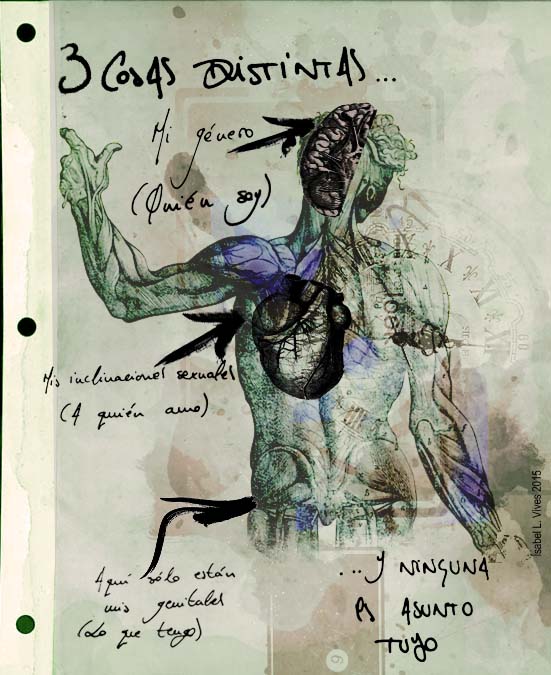 3 COSAS DISTINTAS...
Mi género
(Quién soy)
Mis inclinaciones sexuales
(A quién amo)
Aquí sólo están
mis genitales
(Lo que tengo)
... Y NINGUNA
es ASUNTO
TUYO
Isabel L. Vives 2015